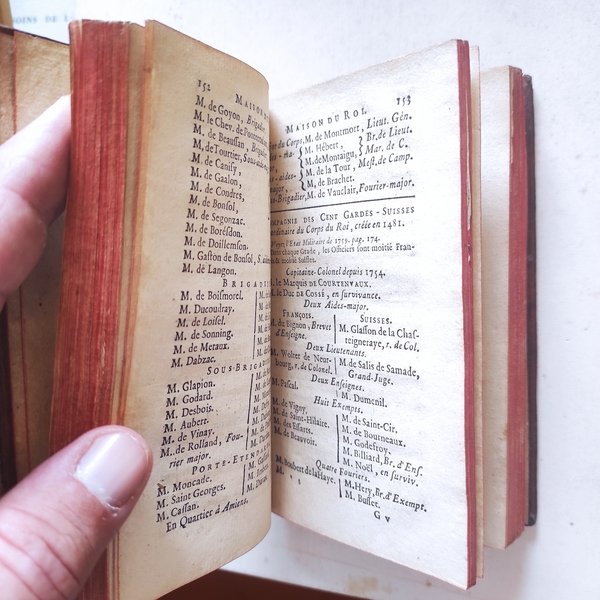 OINS DE L
152
MAISON D
M. de Goyon, Brigadier
M. le Chev. de
M. de Beaussan, Brigadier
M. de Tourtier, Sous-aide
M. de Canisy,
M. de Gaalon,
M. de Coudres,
M. de Bonsol,
M. de Segonzac.
M. de Boresdon.
M. de Doillemson.
M. Gaston de Bonsol, S.
M. de Langon.
BRIGADI
M. de Boismorel.
M. Ducoudray.
M. de Loisel.
M. de Sonning.
M. de Metaux.
M. Dabzac.
SOUS-BRIG
M. Glapion.
M. Godard.
M. Desbois.
M. Aubert.
M. de Vinay.
M. de Rolland, Fou-
rier major.
PORTE-ETEN
M. Moncade.
M. Saint Georges.
M. Cassan.
En Quartier à Amiens.
MAISON DU ROI. 153
du Corps. M. de Montmort, Lieut. Gén.
M. Hébert, Br. de Lieut.
M. de Montaigu, Mar. de C.
M. de la Tour, Mest. de Camp.
M. de Brachet.
Brigadier, M. de Vauclair, Fourier-major.
MPAGNIE DES CENT GARDES-SUISSES
rdinaire du Corps du Roi, créée en 1481.
l'Etat Militaire de 1759. pag. 174.
chaque Grade, les Officiers sont moitié Fran-
moitié Suisses.
Capitaine-Colonel depuis 1754.
le MARQUIS DE COURTENVAUX.
le DUC DE COSSÉ, en survivance.
Deux Aides-major.
FRANÇOIS. SUISSES.
de Bignon, Brevet M. Glasson de la Chas-
d'Enseigne. teigneraye, r. de Col.
Deux Lieutenants.
M. Wolter de Neur- M. de Salis de Samade,
bourg, r. de Colonel. Grand-Juge.
Deux Enseignes.
M. Pascul. M. Dumenil.
Huit Exempts.
M. de Vigny. M. de Saint-Cir.
M. de Saint-Hilaire. M. de Bourneaux.
M. des Essarts. M. Godefroy.
M. de Beauvoir. M. Billiard, Br. d'Ens.
M. Noël, en surviv.
Quatre Fouriers.
M. de la Haye. M. Hery, Br. d'Exempt.
M. Busset.
G v